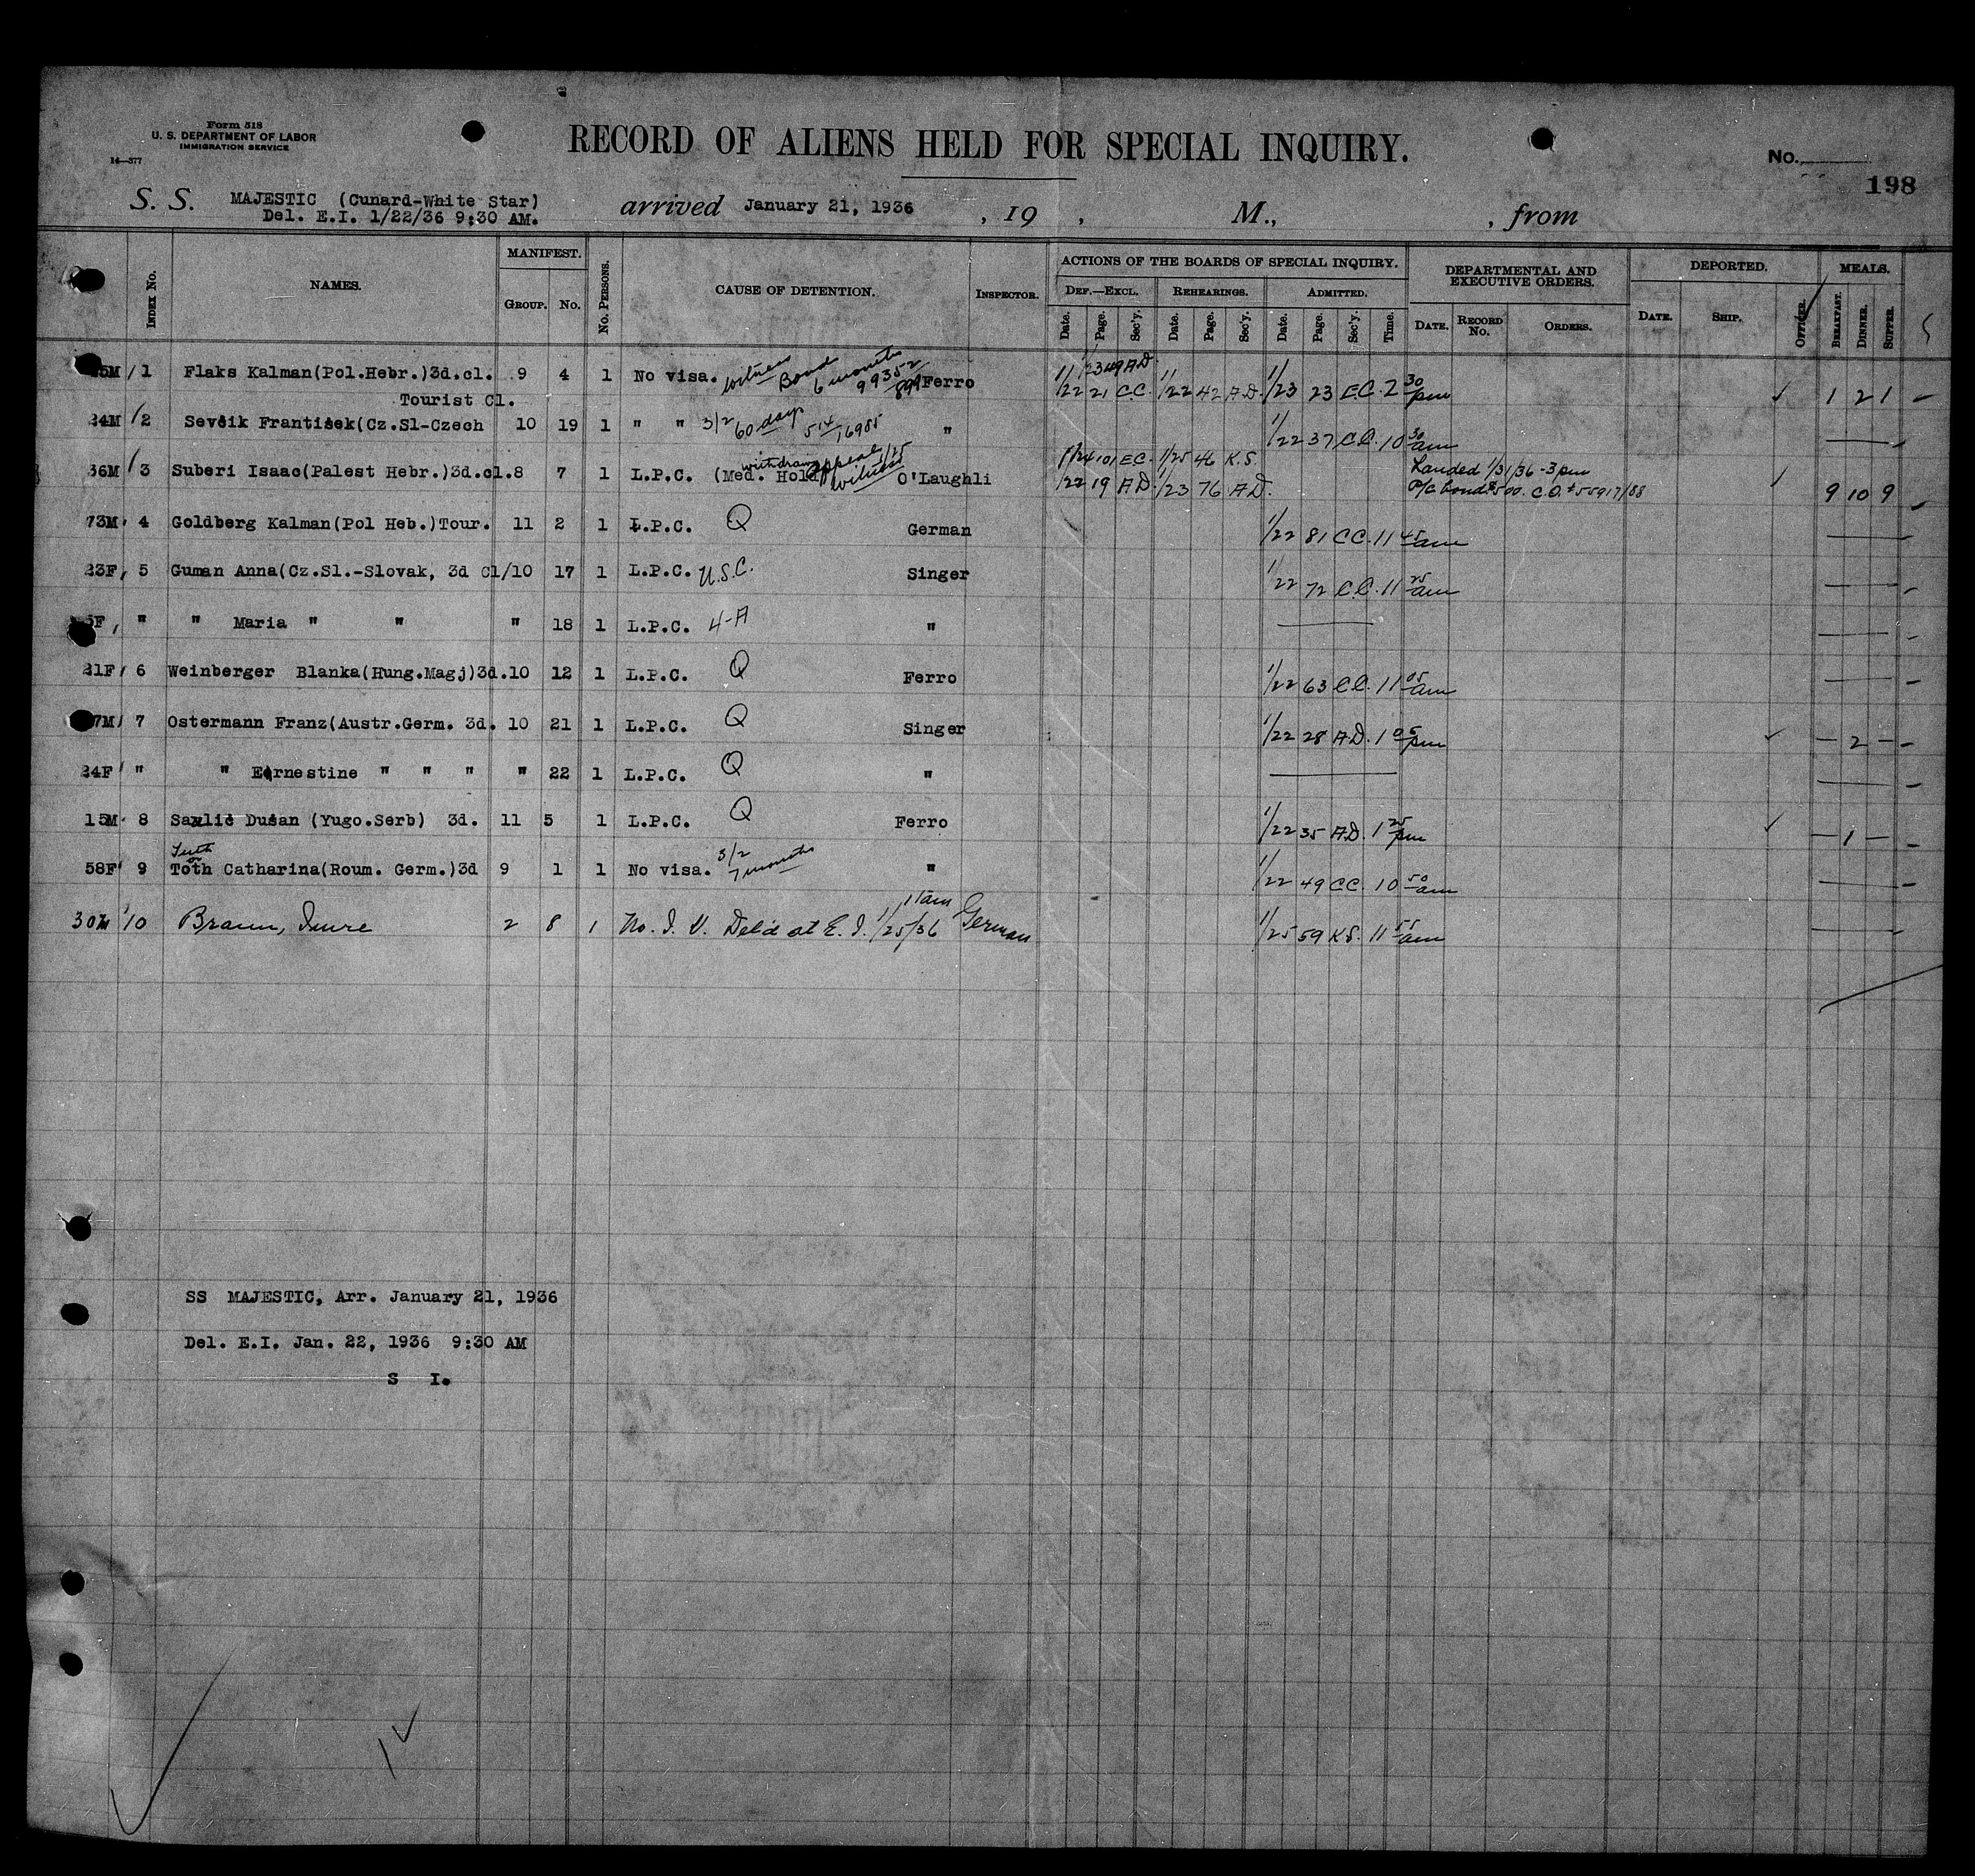 Form 518
U. S. DEPARTMENT OF LABOR
IMMIGRATION SERVICE
14—377
RECORD OF ALIENS HELD FOR SPECIAL INQUIRY.
No.
198
S. S. MAJESTIC (Cunard-White Star) arrived January 21, 1936 , 19 , M., , from
Del. E.I. 1/22/36 9:30 AM.
Index No. NAMES. MANIFEST. Group. No. No. Persons. CAUSE OF DETENTION. Inspector. ACTIONS OF THE BOARDS OF SPECIAL INQUIRY. DEPARTMENTAL AND EXECUTIVE ORDERS. DEPORTED. MEALS.
Def.—Excl. Rehearings. Admitted.
Date. Page. Sec'y. Date. Page. Sec'y. Date. Page. Sec'y. Time. Date. Record No. Orders. Date. Ship. Officer. Breakfast. Dinner. Supper.
witness Bond 6 months 99352/899
1/23 49 A.D.
5M 1 Flaks Kalman(Pol.Hebr.)3d.cl. 9 4 1 No visa. Ferro 1/22 21 C.C. 1/22 42 A.D. 1/23 23 E.C. 2 30 pm 1 2 1
Tourist Cl.
24M 2 Sevšik František(Cz.Sl-Czech 10 19 1 " " 3/2 60 days 514/16985 " 1/22 37 C.C. 10 30 am
withdraws appeal 1/25 witness
1/24 101 E.C. 1/25 46 K.S. Landed 1/31/36 - 3 pm
36M 3 Suberi Isaac(Palest Hebr.)3d.cl.8 7 1 L.P.C. (Med. Hold) O'Laughli 1/22 19 A.D. 1/23 76 A.D. o/c bond $500. C.O. #55917/88 9 10 9
73M 4 Goldberg Kalman(Pol Heb.)Tour. 11 2 1 L.P.C. Q German 1/22 81 C.C. 11 45 am
23F 5 Guman Anna(Cz.Sl.-Slovak, 3d Cl/10 17 1 L.P.C. U.S.C. Singer 1/22 72 C.C. 11 25 am
5F " " Maria " " " 18 1 L.P.C. 4-A "
21F 6 Weinberger Blanka(Hung.Magj)3d.10 12 1 L.P.C. Q Ferro 1/22 63 C.C. 11 05 am
7M 7 Ostermann Franz(Austr.Germ. 3d. 10 21 1 L.P.C. Q Singer 1/22 28 A.D. 1 05 pm - 2 -
24F " " Ernestine " " " " 22 1 L.P.C. Q "
15M 8 Dušan (Yugo.Serb) 3d. 11 5 1 L.P.C. Q Ferro 1/22 35 A.D. 1 25 pm - 1 -
or
58F 9 Toth Catharina(Roum. Germ.)3d 9 1 1 No visa. 3/2 7 months " 1/22 49 C.C. 10 50 am
11am
30M 10 Braun, Imre 2 8 1 No. I. V. Del'd at E. I. 1/25/36 German 1/25 59 K.S. 11 55 am
SS MAJESTIC, Arr. January 21, 1936
Del. E.I. Jan. 22, 1936 9:30 AM
S I.